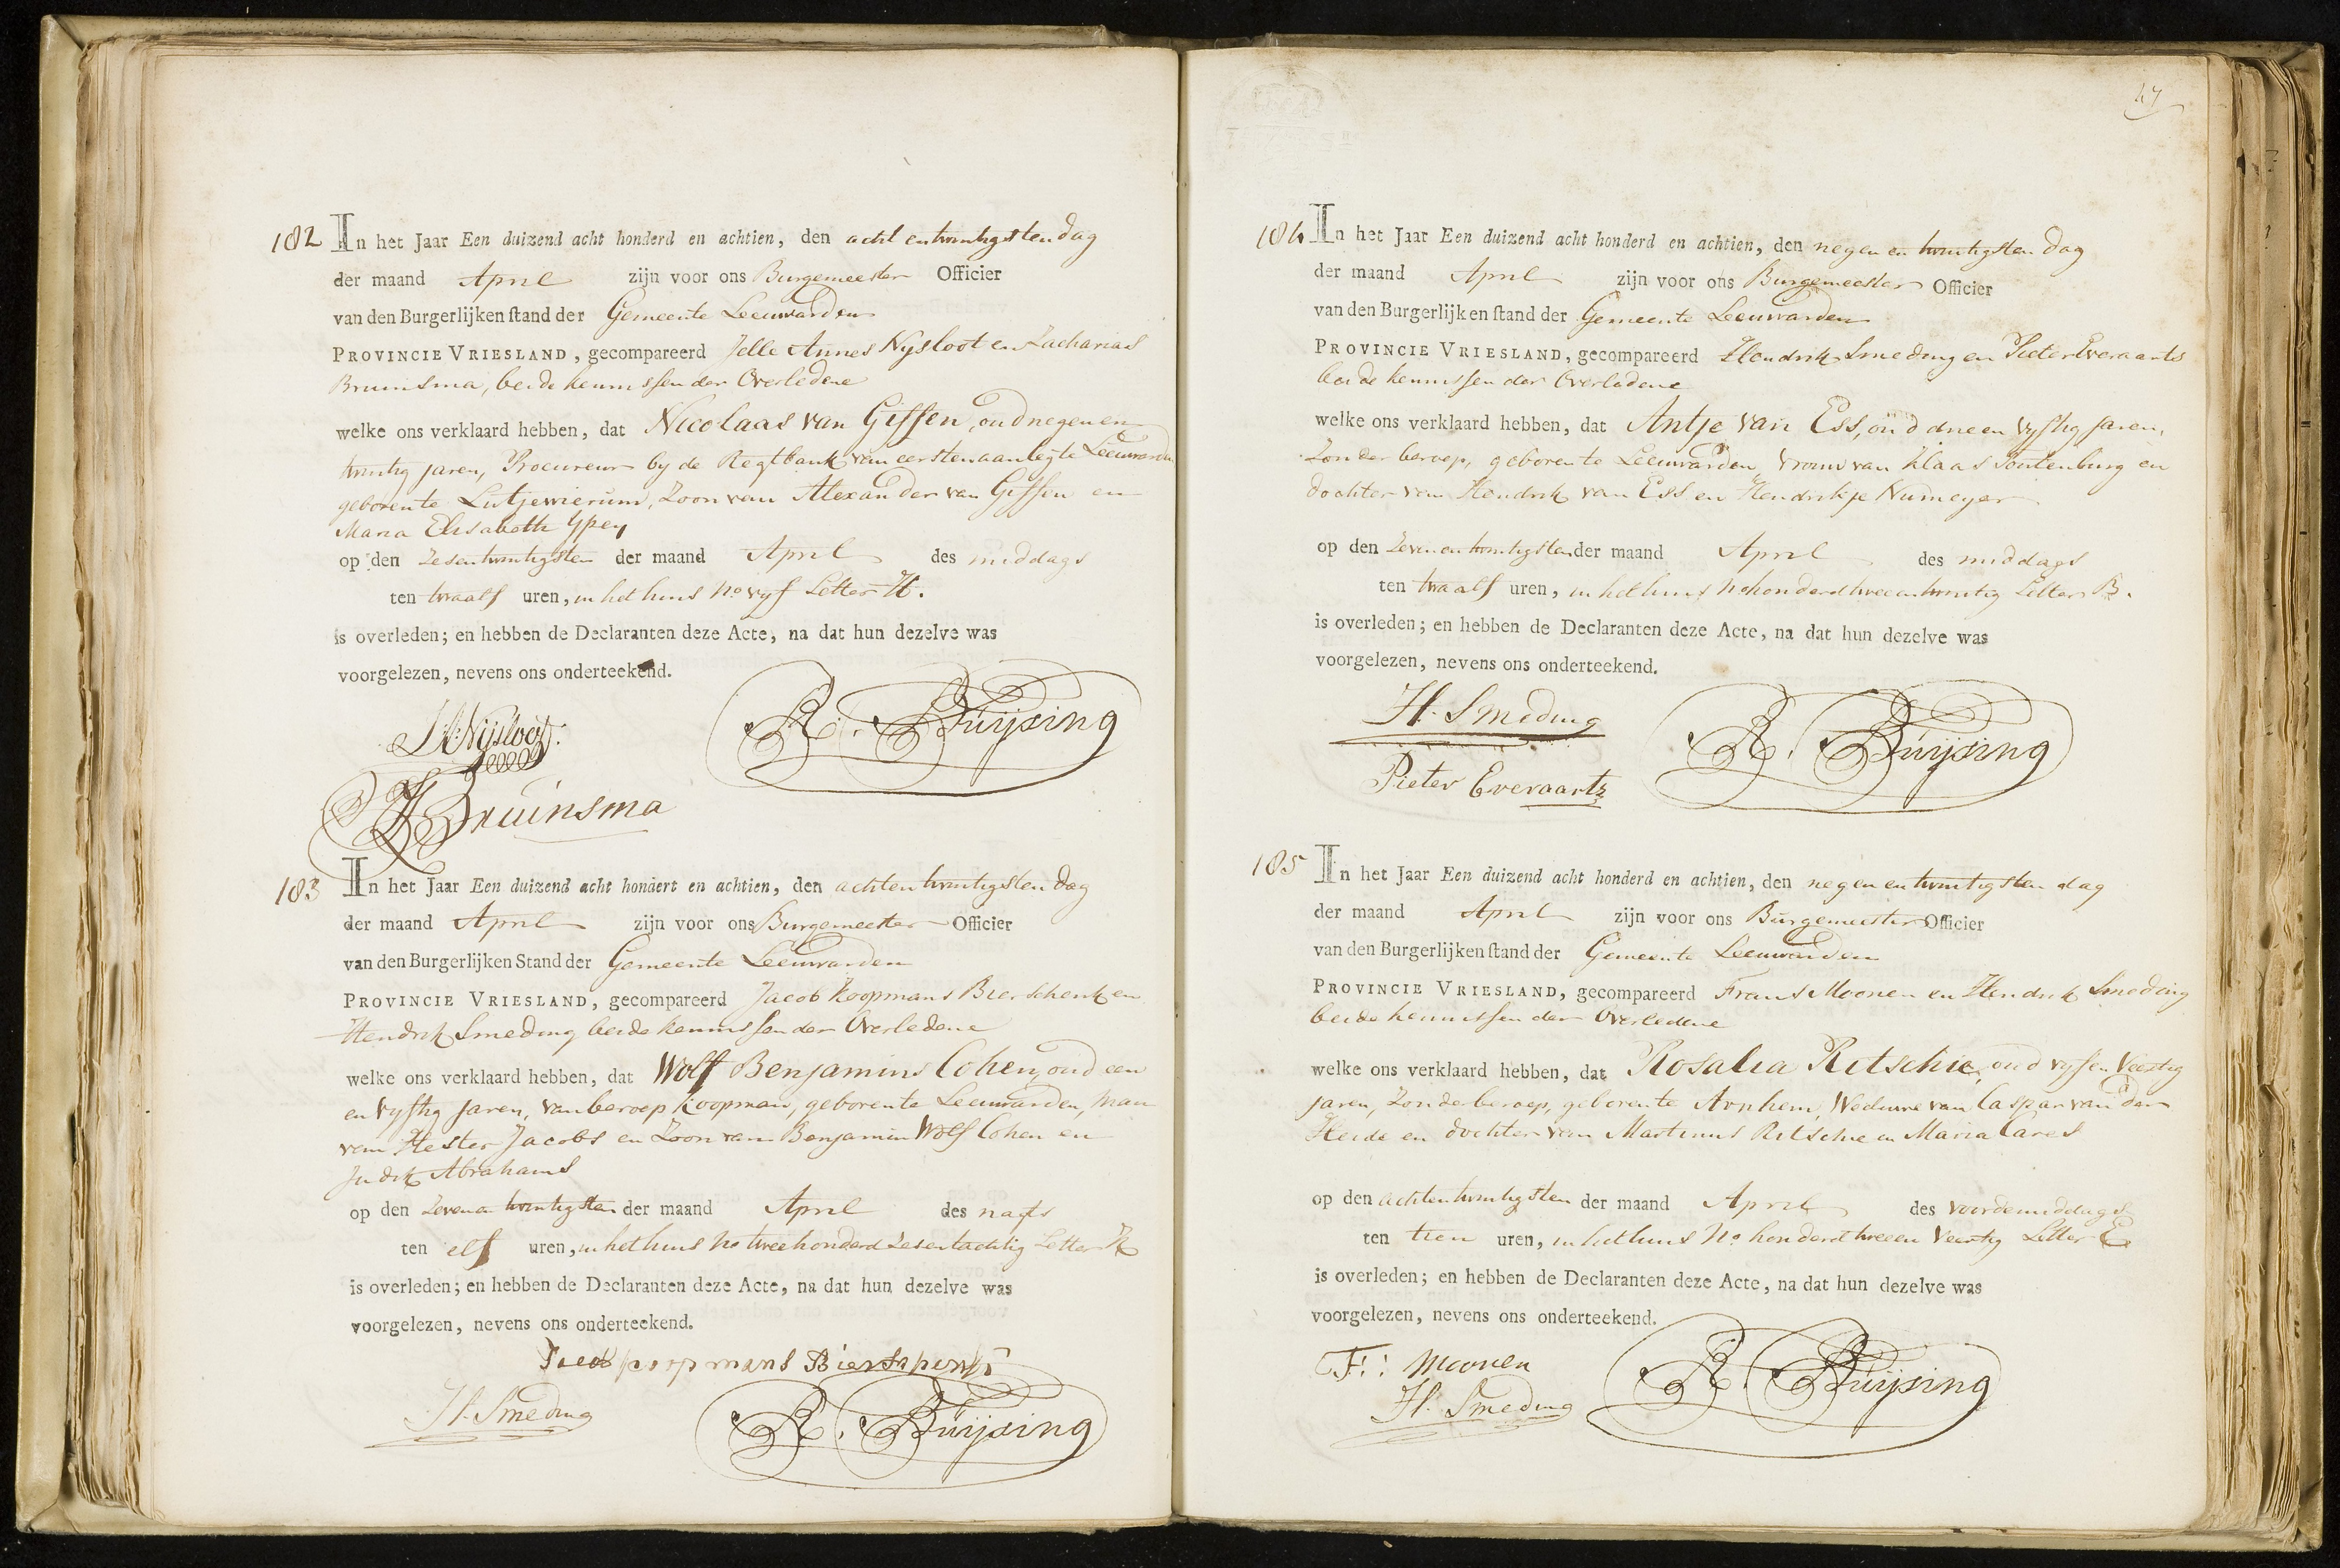 182 In het Jaar Een duizend acht honderd en achtien, den acht en twintigsten dag
der maand April zijn voor ons Burgemeester Officier
van den Burgerlijken stand der Gemeente Leeuwarden
PROVINCIE VRIESLAND, gecompareerd Jelle Annes Nysloot en Zacharias
Bruinsma, beide kennissen der Overledene
welke ons verklaard hebben, dat Nicolaas van Giffen, oud negen en
twintig jaren, Procureur by de Regtbank van eersten aanleg te Leeuwarden
geboren te Lutjewierum, Zoon van Alexander van Giffen en
Maria Elisabeth Ypey
op den zesentwintigsten der maand April des middags
ten twaalf uren, in het huis No vyf Letter H.
is overleden; en hebben de Declaranten deze Acte, na dat hun dezelve was
voorgelezen, nevens ons onderteekend.
J:A:Nijsloot:
R. Buijsing
Z Bruinsma
183 In het Jaar Een duizend acht hondert en achtien, den achtentwintigsten dag
der maand April zijn voor ons Burgemeester Officier
van den Burgerlijken Stand der Gemeente Leeuwarden
PROVINCIE VRIESLAND, gecompareerd Jacob Koopmans Bierschenk en
Hendrik Smeding beide kennissen der Overledene
welke ons verklaard hebben, dat Wolf Benjamins Cohen, oud een
en vyftig jaren, van beroep Koopman, geboren te Leeuwarden, Man
van Hester Jacobs en Zoon van Benjamin Wolf Cohen en
Judik Abrahams
op den zeven en twintigsten der maand April des nagts
ten elf uren, in het huis No twee honderd zesentachtig Letter
is overleden; en hebben de Declaranten deze Acte, na dat hun dezelve was
voorgelezen, nevens ons onderteekend.
Jacob koopmans Bierschenk
H. Smeding
R. Buijsing
47
184 In het Jaar Een duizend acht honderd en achtien, den negen en twintigsten dag
der maand April zijn voor ons Burgemeester Officier
van den Burgerlijken stand der Gemeente Leeuwarden
PROVINCIE VRIESLAND, gecompareerd Hendrik Smeding en Pieter Everaarts
beide kennissen der Overledene
welke ons verklaard hebben, dat Antje van Ess, oud drie en vyftig jaren,
Zonder beroep, geboren te Leeuwarden, Vrouw van Klaas Soutenburg en
dochter van Hendrik van Ess en Hendrikje Numeyer
op den zeven en twintigsten der maand April des middags
ten twaalf uren, in het huis No honderd twee en twintig Letter B.
is overleden; en hebben de Declaranten deze Acte, na dat hun dezelve was
voorgelezen, nevens ons onderteekend.
H. Smeding
R. Buijsing
Pieter Everaartz
185 In het Jaar Een duizend acht honderd en achtien, den negen en twintigsten dag
der maand April zijn voor ons Burgemeester Officier
van den Burgerlijken stand der Gemeente Leeuwarden
PROVINCIE VRIESLAND, gecompareerd Frans Moonen en Hendrik Smeding
beide kennissen der Overledene
welke ons verklaard hebben, dat Rosalia Ritschie, oud vyf en Veertig
jaren, Zonder beroep, geboren te Arnhem, Weduwe van Caspar van der
Heide en dochter van Martinus Ritschie en Maria Cares
op den achtentwintigsten der maand April des voordemiddags
ten tien uren, in het huis No honderd twee en Veertig Letter E
is overleden; en hebben de Declaranten deze Acte, na dat hun dezelve was
voorgelezen, nevens ons onderteekend.
F:: Moonen
H. Smeding
R. Buijsing